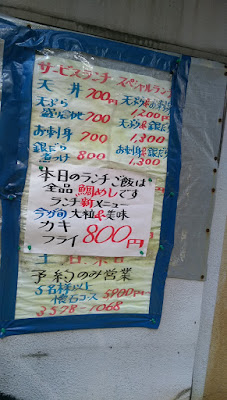 サービスランチ スペシャルランチ
天丼 700円
天ぷら
700
1,200円
お刺身 700
1,300
銀だら
煮つけ 800
お刺身
1,300
本日のランチご飯は
全品 鯛めしです
ランチ新メニュー
今が旬 大粒で美味
カキ
フライ 800円
土日祭日
予約のみ営業
5名様以上
懐石コース 5000円
3578-1068